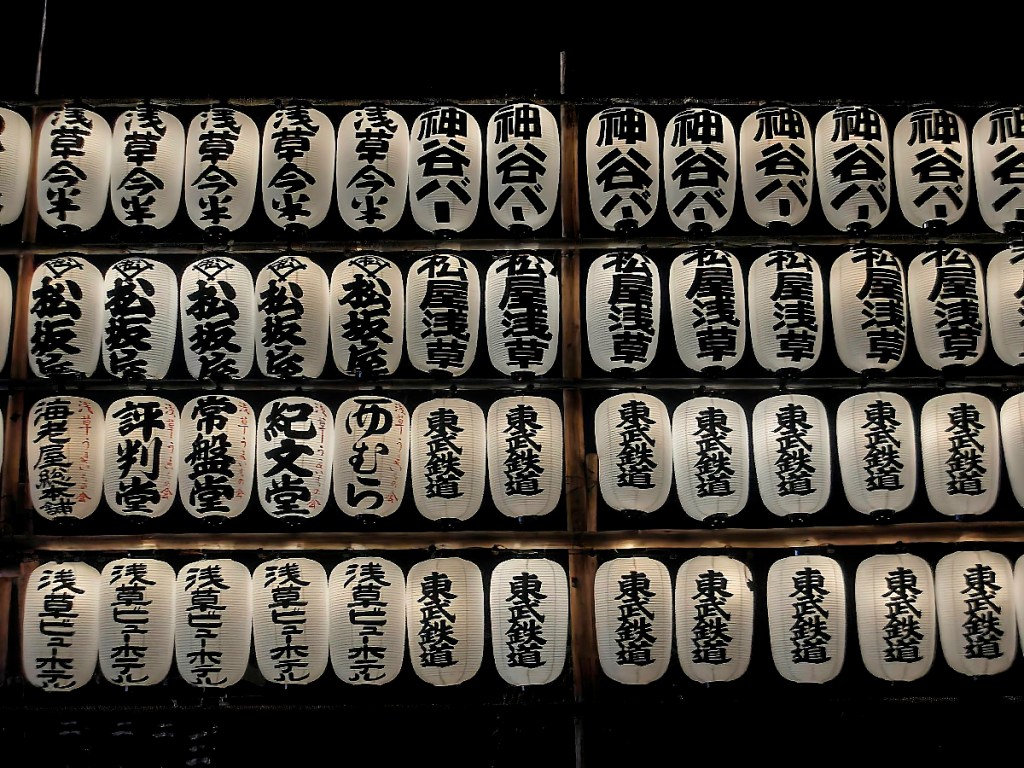 浅草今半
浅草今半
浅草今半
浅草今半
浅草今半
神谷バー
神谷バー
神谷バー
神谷バー
神谷バー
神谷バー
神谷バー
神谷バー
松坂屋
松坂屋
松坂屋
松坂屋
松坂屋
松屋浅草
松屋浅草
松屋浅草
松屋浅草
松屋浅草
松屋浅草
松屋浅草
海老屋総本舗
浅草うまいもの会
評判堂
浅草うまいもの会
常盤堂
浅草うまいもの会
紀文堂
浅草うまいもの会
西むら
浅草うまいもの会
東武鉄道
東武鉄道
東武鉄道
東武鉄道
東武鉄道
東武鉄道
東武鉄道
浅草ビューホテル
浅草ビューホテル
浅草ビューホテル
浅草ビューホテル
浅草ビューホテル
東武鉄道
東武鉄道
東武鉄道
東武鉄道
東武鉄道
東武鉄道
東武鉄道